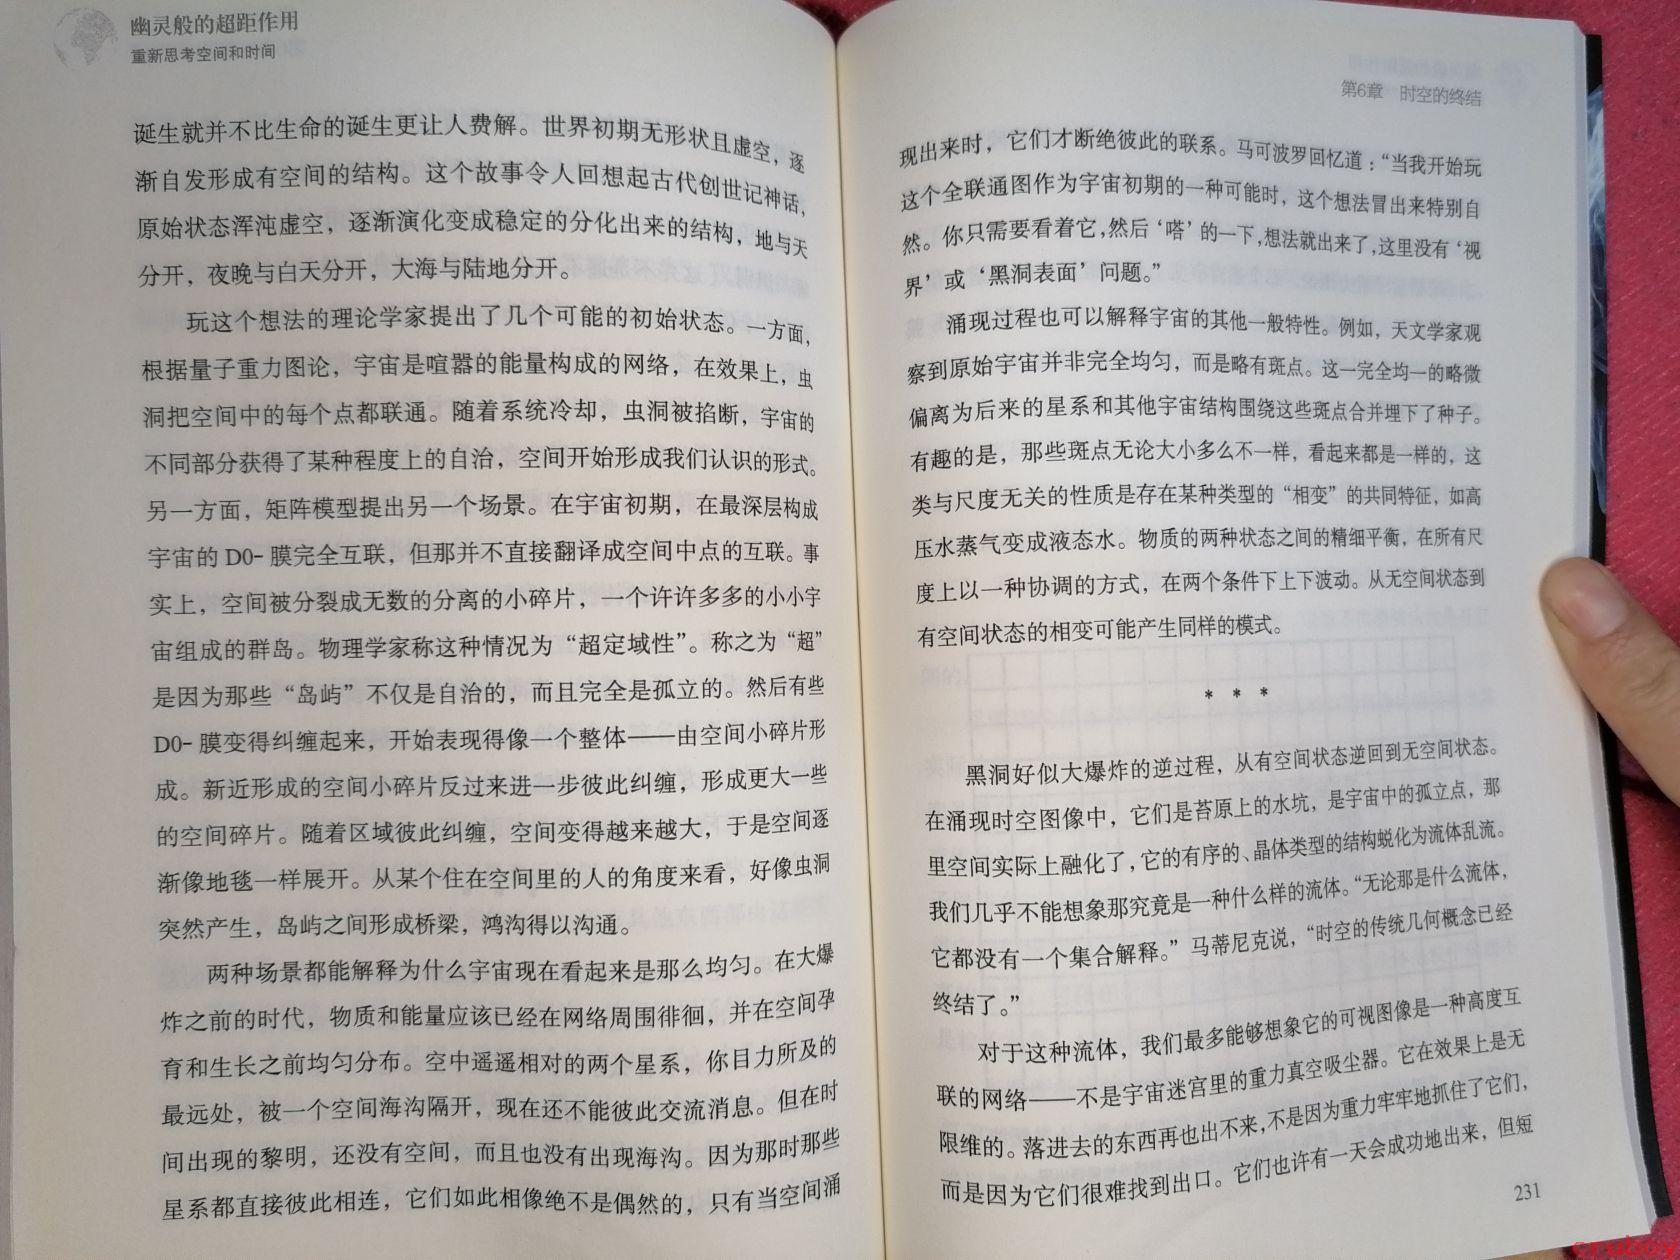 幽灵般的超距作用
重新思考空间和时间
诞生就并不比生命的诞生更让人费解。世界初期无形状且虚空，逐
渐自发形成有空间的结构。这个故事令人回想起古代创世记神话，
原始状态浑沌虚空，逐渐演化变成稳定的分化出来的结构，地与天
分开，夜晚与白天分开，大海与陆地分开。
玩这个想法的理论学家提出了几个可能的初始状态。一方面，
根据量子重力图论，宇宙是喧嚣的能量构成的网络，在效果上，虫
洞把空间中的每个点都联通。随着系统冷却，虫洞被掐断，宇宙的
不同部分获得了某种程度上的自治，空间开始形成我们认识的形式。
另一方面，矩阵模型提出另一个场景。在宇宙初期，在最深层构成
宇宙的 D0-膜完全互联，但那并不直接翻译成空间中点的互联。事
实上，空间被分裂成无数的分离的小碎片，一个许许多多的小小宇
宙组成的群岛。物理学家称这种情况为“超定域性”。称之为“超”
是因为那些“岛屿”不仅是自治的，而且完全是孤立的。然后有些
D0-膜变得纠缠起来，开始表现得像一个整体——由空间小碎片形
成。新近形成的空间小碎片反过来进一步彼此纠缠，形成更大一些
的空间碎片。随着区域彼此纠缠，空间变得越来越大，于是空间逐
渐像地毯一样展开。从某个住在空间里的人的角度来看，好像虫洞
突然产生，岛屿之间形成桥梁，鸿沟得以沟通。
两种场景都能解释为什么宇宙现在看起来是那么均匀。在大爆
炸之前的时代，物质和能量应该已经在网络周围徘徊，并在空间孕
育和生长之前均匀分布。空中遥遥相对的两个星系，你目力所及的
最远处，被一个空间海沟隔开，现在还不能彼此交流消息。但在时
间出现的黎明，还没有空间，而且也没有出现海沟。因为那时那些
星系都直接彼此相连，它们如此相像绝不是偶然的，只有当空间涌
第6章 时空的终结
现出来时，它们才断绝彼此的联系。马可波罗回忆道：“当我开始玩
这个全联通图作为宇宙初期的一种可能时，这个想法冒出来特别自
然。你只需要看着它，然后‘嗒’的一下，想法就出来了，这里没有‘视
界’或‘黑洞表面’问题。”
涌现过程也可以解释宇宙的其他一般特性。例如，天文学家观
察到原始宇宙并非完全均匀，而是略有斑点。这一完全均一的略微
偏离为后来的星系和其他宇宙结构围绕这些斑点合并埋下了种子。
有趣的是，那些斑点无论大小多么不一样，看起来都是一样的，这
类与尺度无关的性质是存在某种类型的“相变”的共同特征，如高
压水蒸气变成液态水。物质的两种状态之间的精细平衡，在所有尺
度上以一种协调的方式，在两个条件下上下波动。从无空间状态到
有空间状态的相变可能产生同样的模式。
* * *
黑洞好似大爆炸的逆过程，从有空间状态逆回到无空间状态。
在涌现时空图像中，它们是苔原上的水坑，是宇宙中的孤立点，那
里空间实际上融化了，它的有序的、晶体类型的结构蜕化为流体乱流。
我们几乎不能想象那究竟是一种什么样的流体。“无论那是什么流体，
它都没有一个集合解释。”马蒂尼克说，“时空的传统几何概念已经
终结了。”
对于这种流体，我们最多能够想象它的可视图像是一种高度互
联的网络——不是宇宙迷宫里的重力真空吸尘器。它在效果上是无
限维的。落进去的东西再也出不来，不是因为重力牢牢地抓住了它们，
而是因为它们很难找到出口。它们也许有一天会成功地出来，但短
231